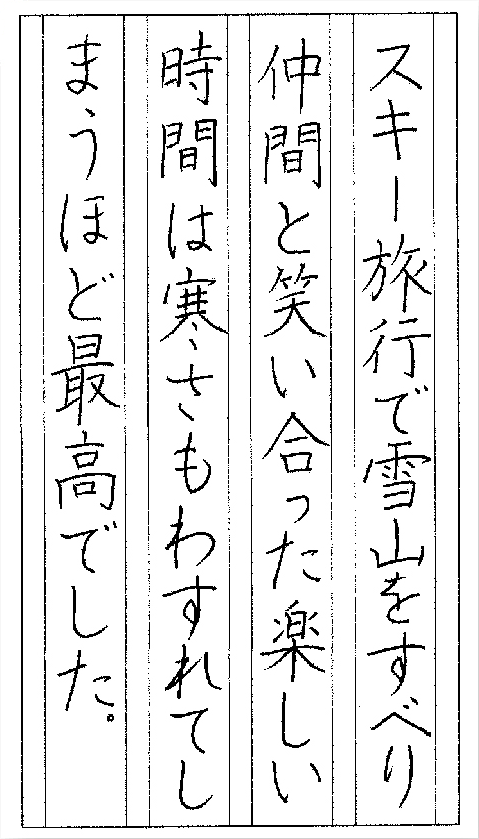 スキー旅行で雪山をすべり
仲間と笑い合った楽しい
時間は寒さもわすれてし
まうほど最高でした。